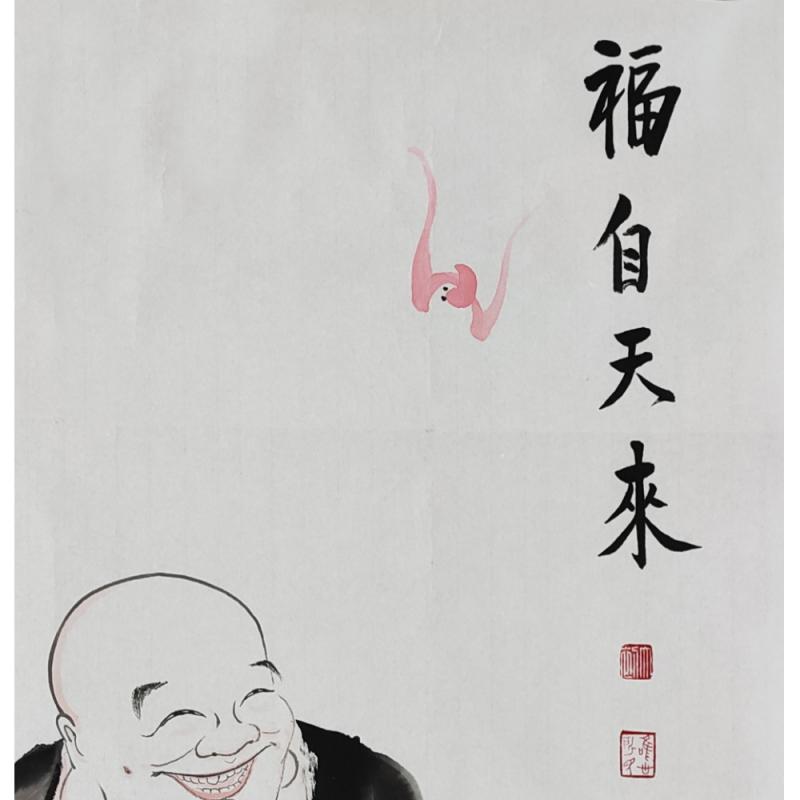 福自天來